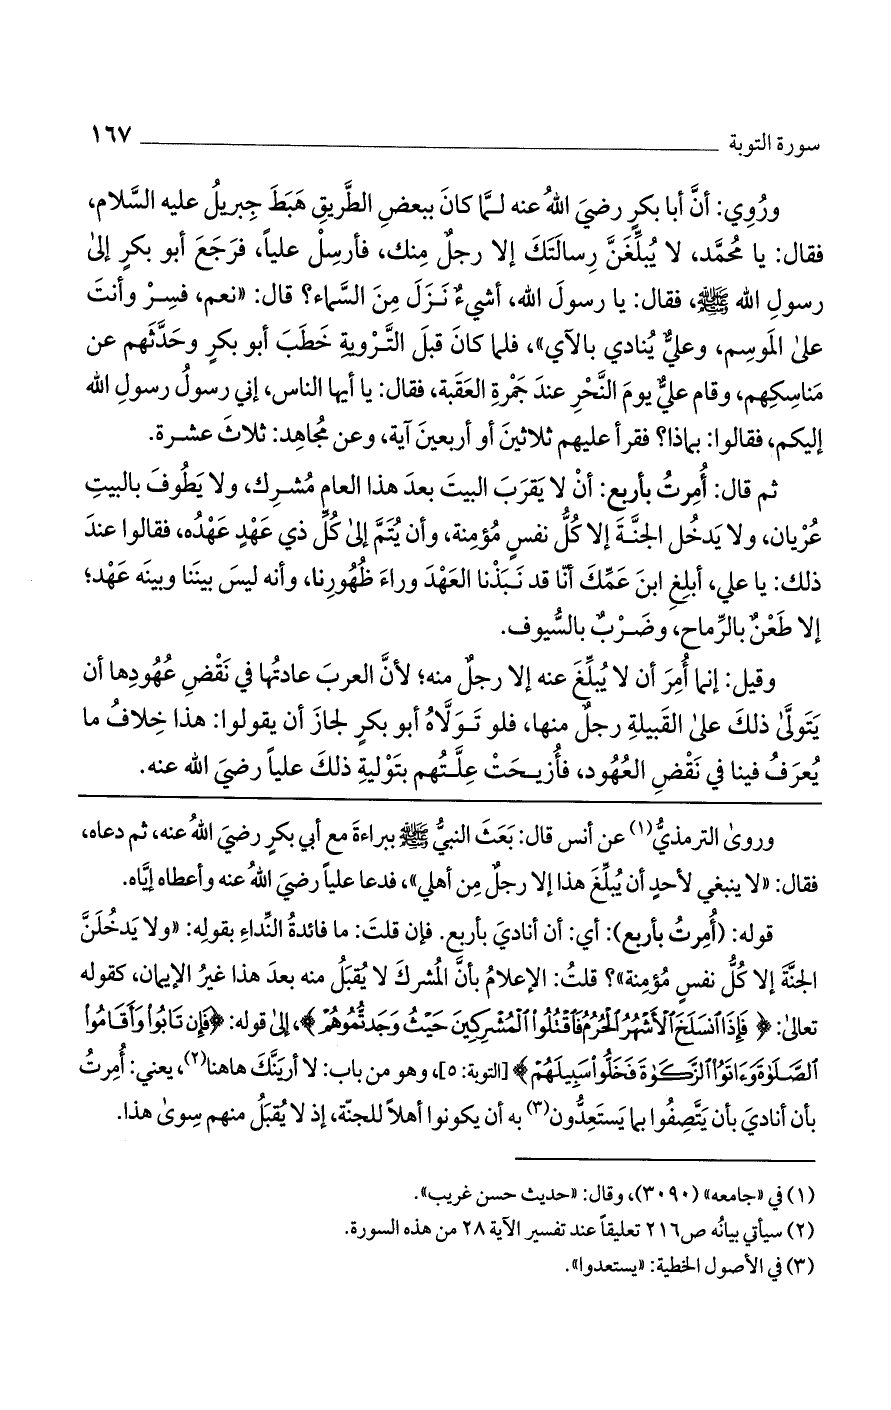 سورة التوبة ١٦٧
ورُوِي: أنَّ أبا بكرٍ رضيَ اللهُ عنه لـمَّا كانَ ببعضِ الطَّريقِ هَبَطَ جِبريلُ عليه السَّلام،
فقال: يا مُحمَّد، لا يُبلِّغَنَّ رِسالَتَكَ إلا رجلٌ مِنك، فأرسِلْ علياً، فرَجَعَ أبو بكرٍ إلىٰ
رسولِ الله ﷺ، فقال: يا رسولَ الله، أشيءٌ نَـزَلَ مِنَ السَّماء؟ قال: «نعم، فسِرْ وأنتَ
علىٰ المَوسِم، وعليٌّ يُنادي بالآي»، فلما كانَ قبلَ التَّرْويةِ خَطَبَ أبو بكرٍ وحَدَّثَهم عن
مَناسِكِهم، وقام عليٌّ يومَ النَّحْرِ عندَ جَمْرةِ العَقَبة، فقال: يا أيها الناس، إني رسولُ رسولِ الله
إليكم، فقالوا: بماذا؟ فقرأ عليهم ثلاثينَ أو أربعينَ آية، وعن مُجاهِد: ثلاثَ عشـرة.
ثم قال: أُمِرتُ بأربع: أنْ لا يَقرَبَ البيتَ بعدَ هذا العامِ مُشـرِك، ولا يَطُوفَ بالبيتِ
عُرْيان، ولا يَدخُل الجنَّـةَ إلا كُلُّ نفسٍ مُؤمِنة، وأن يُتَمَّ إلىٰ كُلِّ ذي عَهْدٍ عَهْدُه، فقالوا عندَ
ذلك: يا علي، أبلِغِ ابنَ عَمِّكَ أنّا قد نَـبَذْنا العَهْدَ وراءَ ظُهُورِنا، وأنه ليسَ بينَنا وبينَه عَهْد؛
إلا طَعْنٌ بالرِّماح، وضَـرْبٌ بالسُّيوف.
وقيل: إنما أُمِرَ أن لا يُبلِّغَ عنه إلا رجلٌ منه؛ لأنَّ العربَ عادتُها في نَقْضِ عُهُودِها أن
يَتَولَّىٰ ذلكَ علىٰ القَبيلةِ رجلٌ منها، فلو تَـولَّاهُ أبو بكرٍ لجازَ أن يقولوا: هذا خِلافُ ما
يُعرَفُ فينا في نَقْضِ العُهُود، فأُزيـحَتْ عِلَّـتُهم بتَوْليةِ ذلكَ علياً رضيَ الله عنه.
وروىٰ الترمذيُّ(١) عن أنس قال: بَعَثَ النبيُّ ﷺ ببراءةَ مع أبي بكرٍ رضيَ اللهُ عنه، ثم دعاه،
فقال: «لا ينبغي لأحدٍ أن يُبلِّغَ هذا إلا رجلٌ مِن أهلي»، فدعا علياً رضيَ اللهُ عنه وأعطاه إيَّاه.
قوله: (أُمِرتُ بأربع): أي: أن أناديَ بأربع. فإن قلتَ: ما فائدةُ النِّداءِ بقولِه: «ولا يَدخُلَنَّ
الجنَّةَ إلا كُلُّ نفسٍ مُؤمِنة»؟ قلتُ: الإعلامُ بأنَّ المُشركَ لا يُقبَلُ منه بعدَ هذا غيرُ الإيمان، كقوله
تعالىٰ: ﴿فَإِذَا ٱنسَلَخَ ٱلْأَشْهُرُ ٱلْحُرُمُ فَٱقْتُلُوا۟ ٱلْمُشْرِكِينَ حَيْثُ وَجَدتُّمُوهُمْ﴾، إلىٰ قوله: ﴿فَإِن تَابُوا۟ وَأَقَامُوا۟
ٱلصَّلَوٰةَ وَءَاتَوُا۟ ٱلزَّكَوٰةَ فَخَلُّوا۟ سَبِيلَهُمْ﴾ [التوبة: ٥]، وهو من باب: لا أرَيَنَّكَ هاهنا(٢)، يعني: أُمِرتُ
بأن أناديَ بأن يَتَّصِفُوا بما يَستَعِدُّون(٣) به أن يكونوا أهلاً للجنّة، إذ لا يُقبَلُ منهم سِوىٰ هذا.
(١) في «جامعه» (٣٠٩٠)، وقال: «حديث حسن غريب».
(٢) سيأتي بيانُه ص٢١٦ تعليقاً عند تفسير الآية ٢٨ من هذه السورة.
(٣) في الأصول الخطية: «يستعدوا».